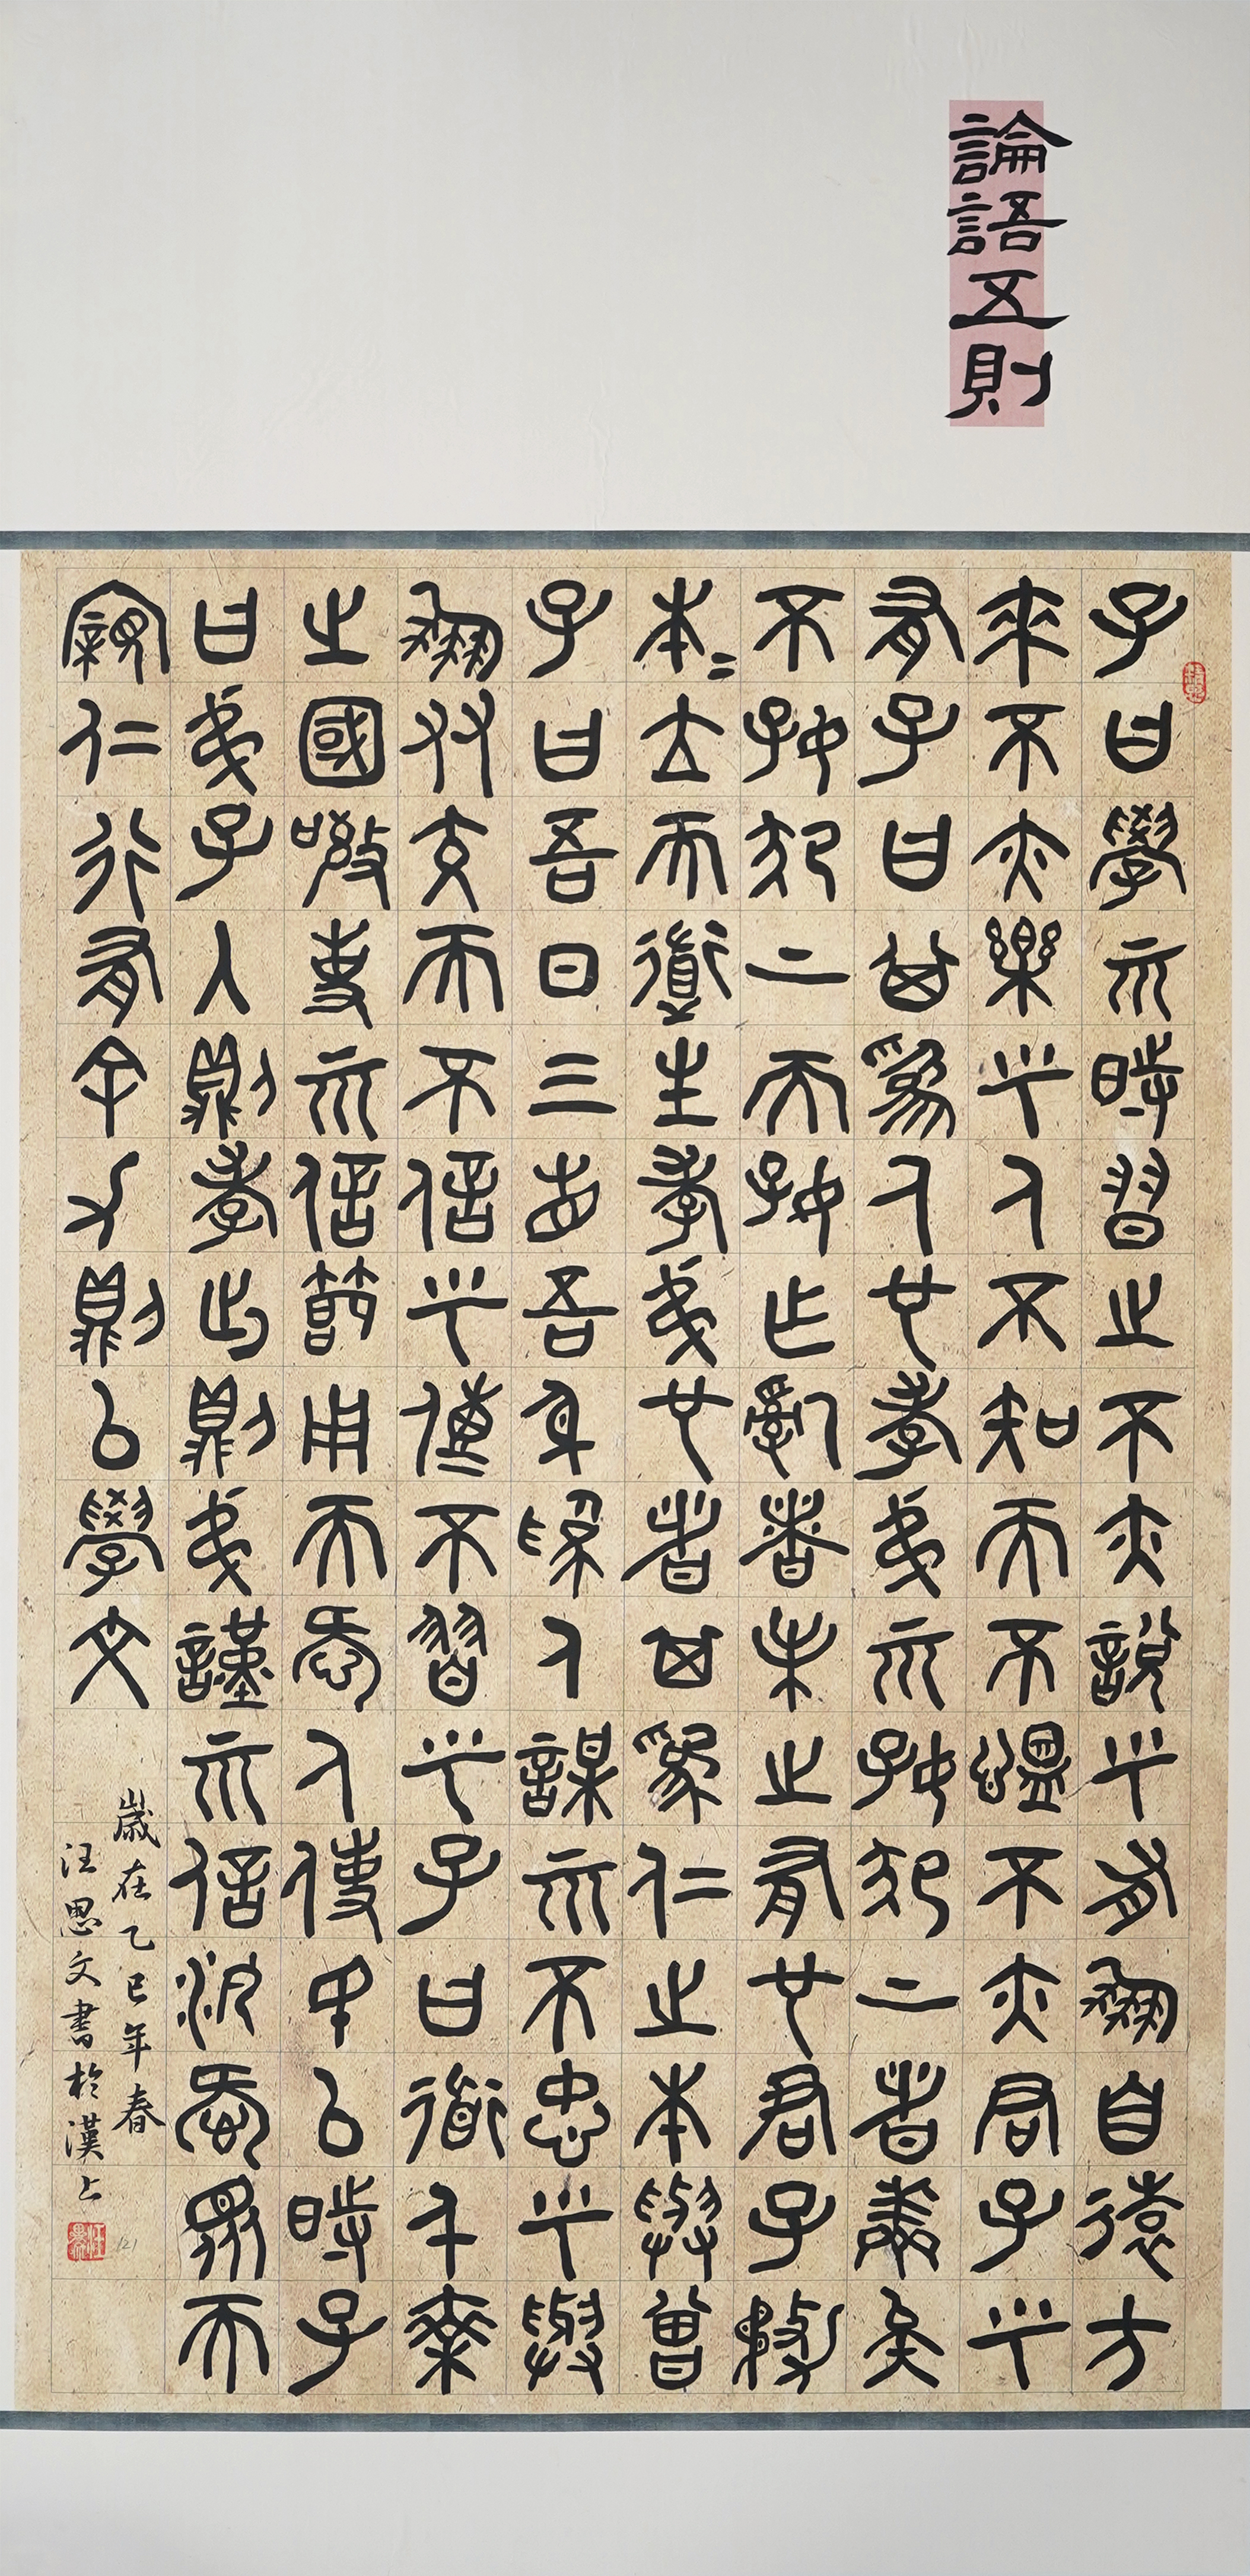 論語五則
子曰學而時習之不亦說乎有朋自遠方
來不亦樂乎人不知而不慍不亦君子乎
有子曰其為人也孝弟而好犯上者鮮矣
不好犯上而好作亂者未之有也君子務
本〻立而道生孝弟也者其為仁之本與曾
子曰吾日三省吾身為人謀而不忠乎與
朋友交而不信乎傳不習乎子曰道千乘
之國敬事而信節用而愛人使民以時子
曰弟子入則孝出則弟謹而信汎愛眾而
親仁行有餘力則以學文
歲在乙巳年春
汪思文書於漢上
121